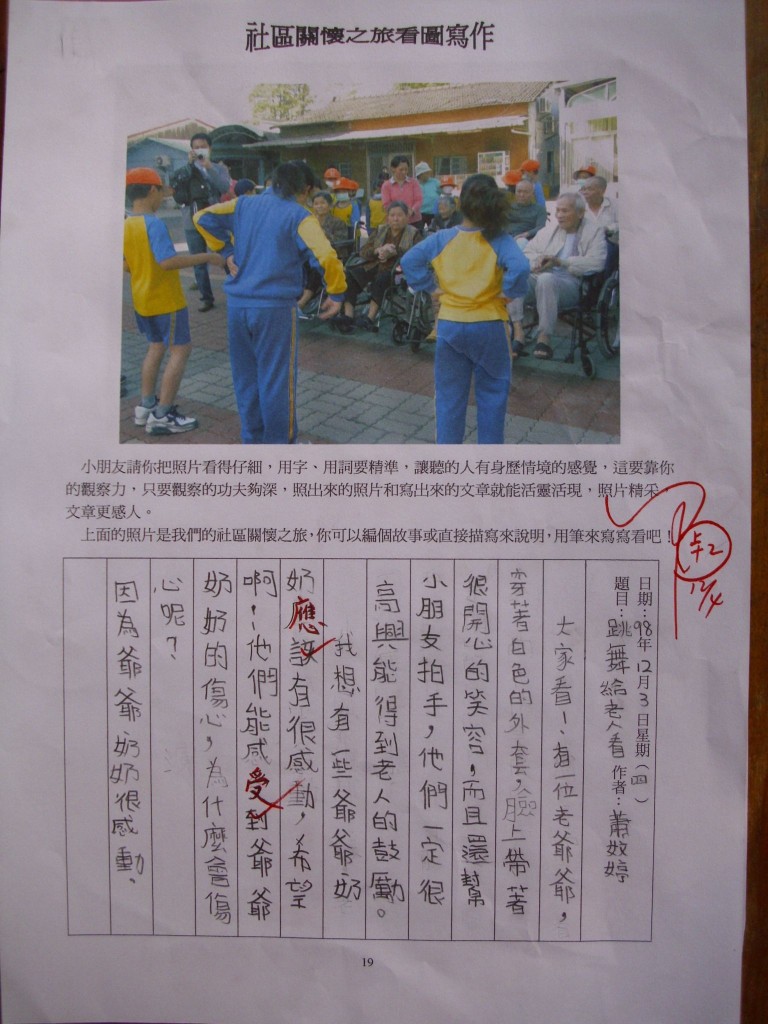 社區關懷之旅看圖寫作
小朋友請你把照片看得仔細，用字、用詞要精準，讓聽的人有身歷情境的感覺，這要靠你
的觀察力，只要觀察的功夫夠深，照出來的照片和寫出來的文章就能活靈活現，照片精采
文章更感人。
上面的照片是我們的社區關懷之旅，你可以編個故事或直接描寫來說明，用筆來寫寫看吧！
12/4
日期：98年12月3日星期（四）
題目：跳舞給老人看 作者：蕭妏婷
大家看！有一位老爺爺，
穿著白色的外套，臉上帶著
很開心的笑容，而且還幫
小朋友拍手，他們一定很
高興能得到老人的鼓勵。
我想有一些爺爺奶
奶應該有很感動，希望
啊！他們能感受到爺爺
奶奶的傷心，為什麼會傷
心呢？
因為爺爺奶奶很感動。
19